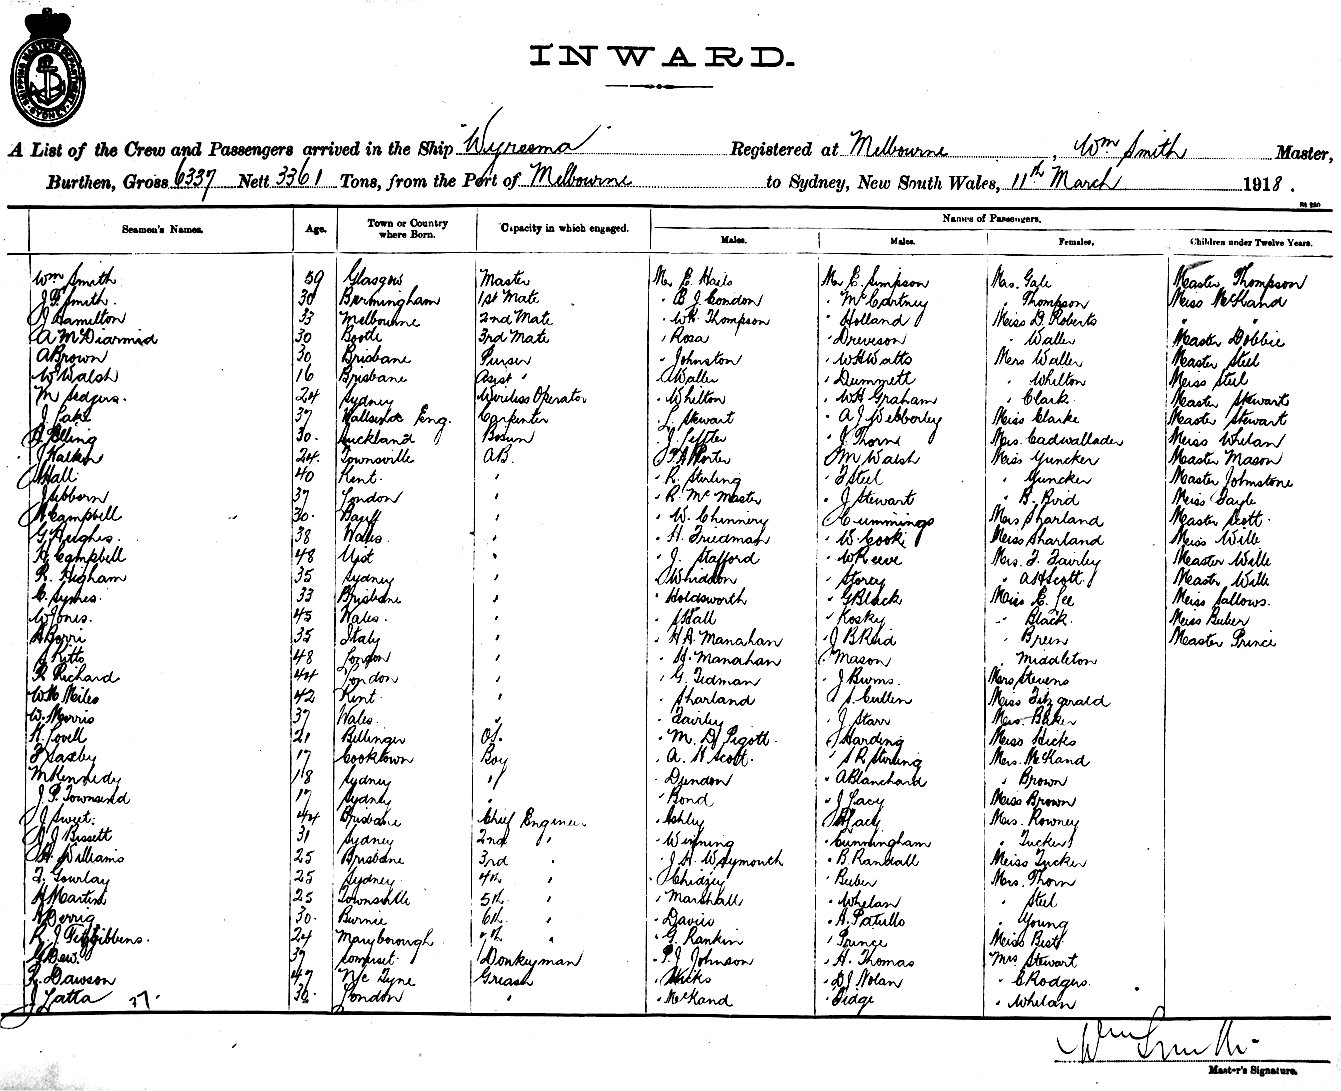 SHIPPING MASTERS DEPARTMENT SYDNEY
INWARD.
A List of the Crew and Passengers arrived in the Ship "Wyreema" Registered at Melbourne, Wm Smith Master,
Burthen, Gross 6337 Nett 3361 Tons, from the Port of Melbourne to Sydney, New South Wales, 11th March 1918.
Names of Passengers.
Seamen's Names. Age. Town or Country where Born. Capacity in which engaged. Males. Males. Females. Children under Twelve Years.
Wm Smith 59 Glasgow Master Mr E. Hails Mr E. Simpson Mrs. Gale Master Thompson
J. F. Smith. 30 Birmingham 1st Mate " B J Condon " McCartney " Thompson Miss McKand
J Hamilton 33 Melbourne 2nd Mate " WH Thompson " Holland Miss D. Roberts " "
A McDiarmid 30 Bootle 3rd Mate " Rosa " Dreveson " Waller Master Dobbie
A Brown 30 Brisbane Purser " Johnston " WH Watts Mrs Waller Master Steel
W Walsh 16 Brisbane Asist " " Waller " Dummett " Whilton Miss Steel
M Sedgers. 24 Sydney Wireless Operator " Whilton " WH Graham " Clark Master Stewart
J Lake 37 Eng. Carpenter " L. Stewart " A J Webborley Miss Clarke Master Stewart
30. Auckland Bosun " J. " J Thorn Mrs. Cadwallader Miss Whelan
J Walker 24 Townsville AB. " Porter " M Walsh Miss Yuncker Master Mason
Hall 40 Kent. " " R. Sterling " F Steel " Yuncker Master Johnstone
37 London " " R McMaster " J Stewart " B. Bird Miss Gayle
Campbell 30. Banff " " W. Chinnery " Cummings Mrs Sharland Master Scott.
G. Hughes. 38 Wales. " " H. Friedman " W. Cook Miss Sharland Miss Wille
Campbell 48 Uist " " J. Stafford " W Reeve Mrs. F. Fairley Master Wille
R. Higham 35 Sydney " " Whiddon " Storey " A H Scott. Master Wille
C. Symes. 33 Brisbane " " Holdsworth " G Black Miss E. Lee Miss Sallows.
W Jones. 45 Wales. " " Hall " Kosky " Black. Miss Buber
35 Italy " " H A. Manahan " J B Reid " Breen Master Prince
Kitto 48 London " " H. Manahan " Mason " Middleton
R Richard 44 London " " G. Tidman " J Burns. Mrs Stevens
WH Miles 42 Kent. " " Sharland " S. Cullen Miss Fitzgerald
W. Morris 37 Wales. " " Fairley " J Starr Mrs. Baker
R. Lovell 21 Bellinger OS. " M. D. Pigott. " Harding Miss Hicks
F Saxby 17 Cooktown Boy " A. H Scott. " S R Sterling Mrs. McKand
M Kennedy 18 Sydney " " Dundon " A Blanchard " Brown
J. P. Townsend 17 Sydney " " Bond " J Lacy Miss Brown
J. Sweet. 44 Brisbane Chief Engineer " Ashley " Lacy Mrs. Rowney
J Bissett 31 Sydney 2nd " " Winning " Cunningham " Tucker
H. Williams 25 Brisbane 3rd " " J. H. Weymouth " B Randall Miss Tucker
F. Gourlay 25 Sydney 4th " " Chidzey " Buber Mrs. Thorn
H Martin 25 Townsville 5th " " Marshall " Whelan " Steel
Derrig 30. Burnie 6th " " Davies " A. Patullo " Young
R. J Fitzgibbens. 24 Maryborough 7th " " G. Rankin " Prince Miss Best
G Dew. 37 Somerset Donkeyman " P. J Johnson " H. Thomas Mrs Stewart
R. Dawson 47 Nc Tyne Greaser " Hicks " D J Nolan " C Rodgers
J Latta 37. 36. London " " McKand " Fidge " Whelan
Wm Smith
Master's Signature.